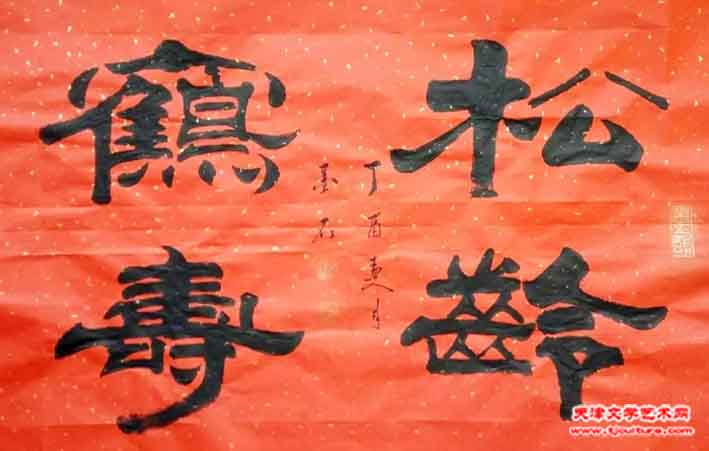 松齡
鶴壽
丁酉夏月
墨石
天津文学艺术网
www.tjculture.com